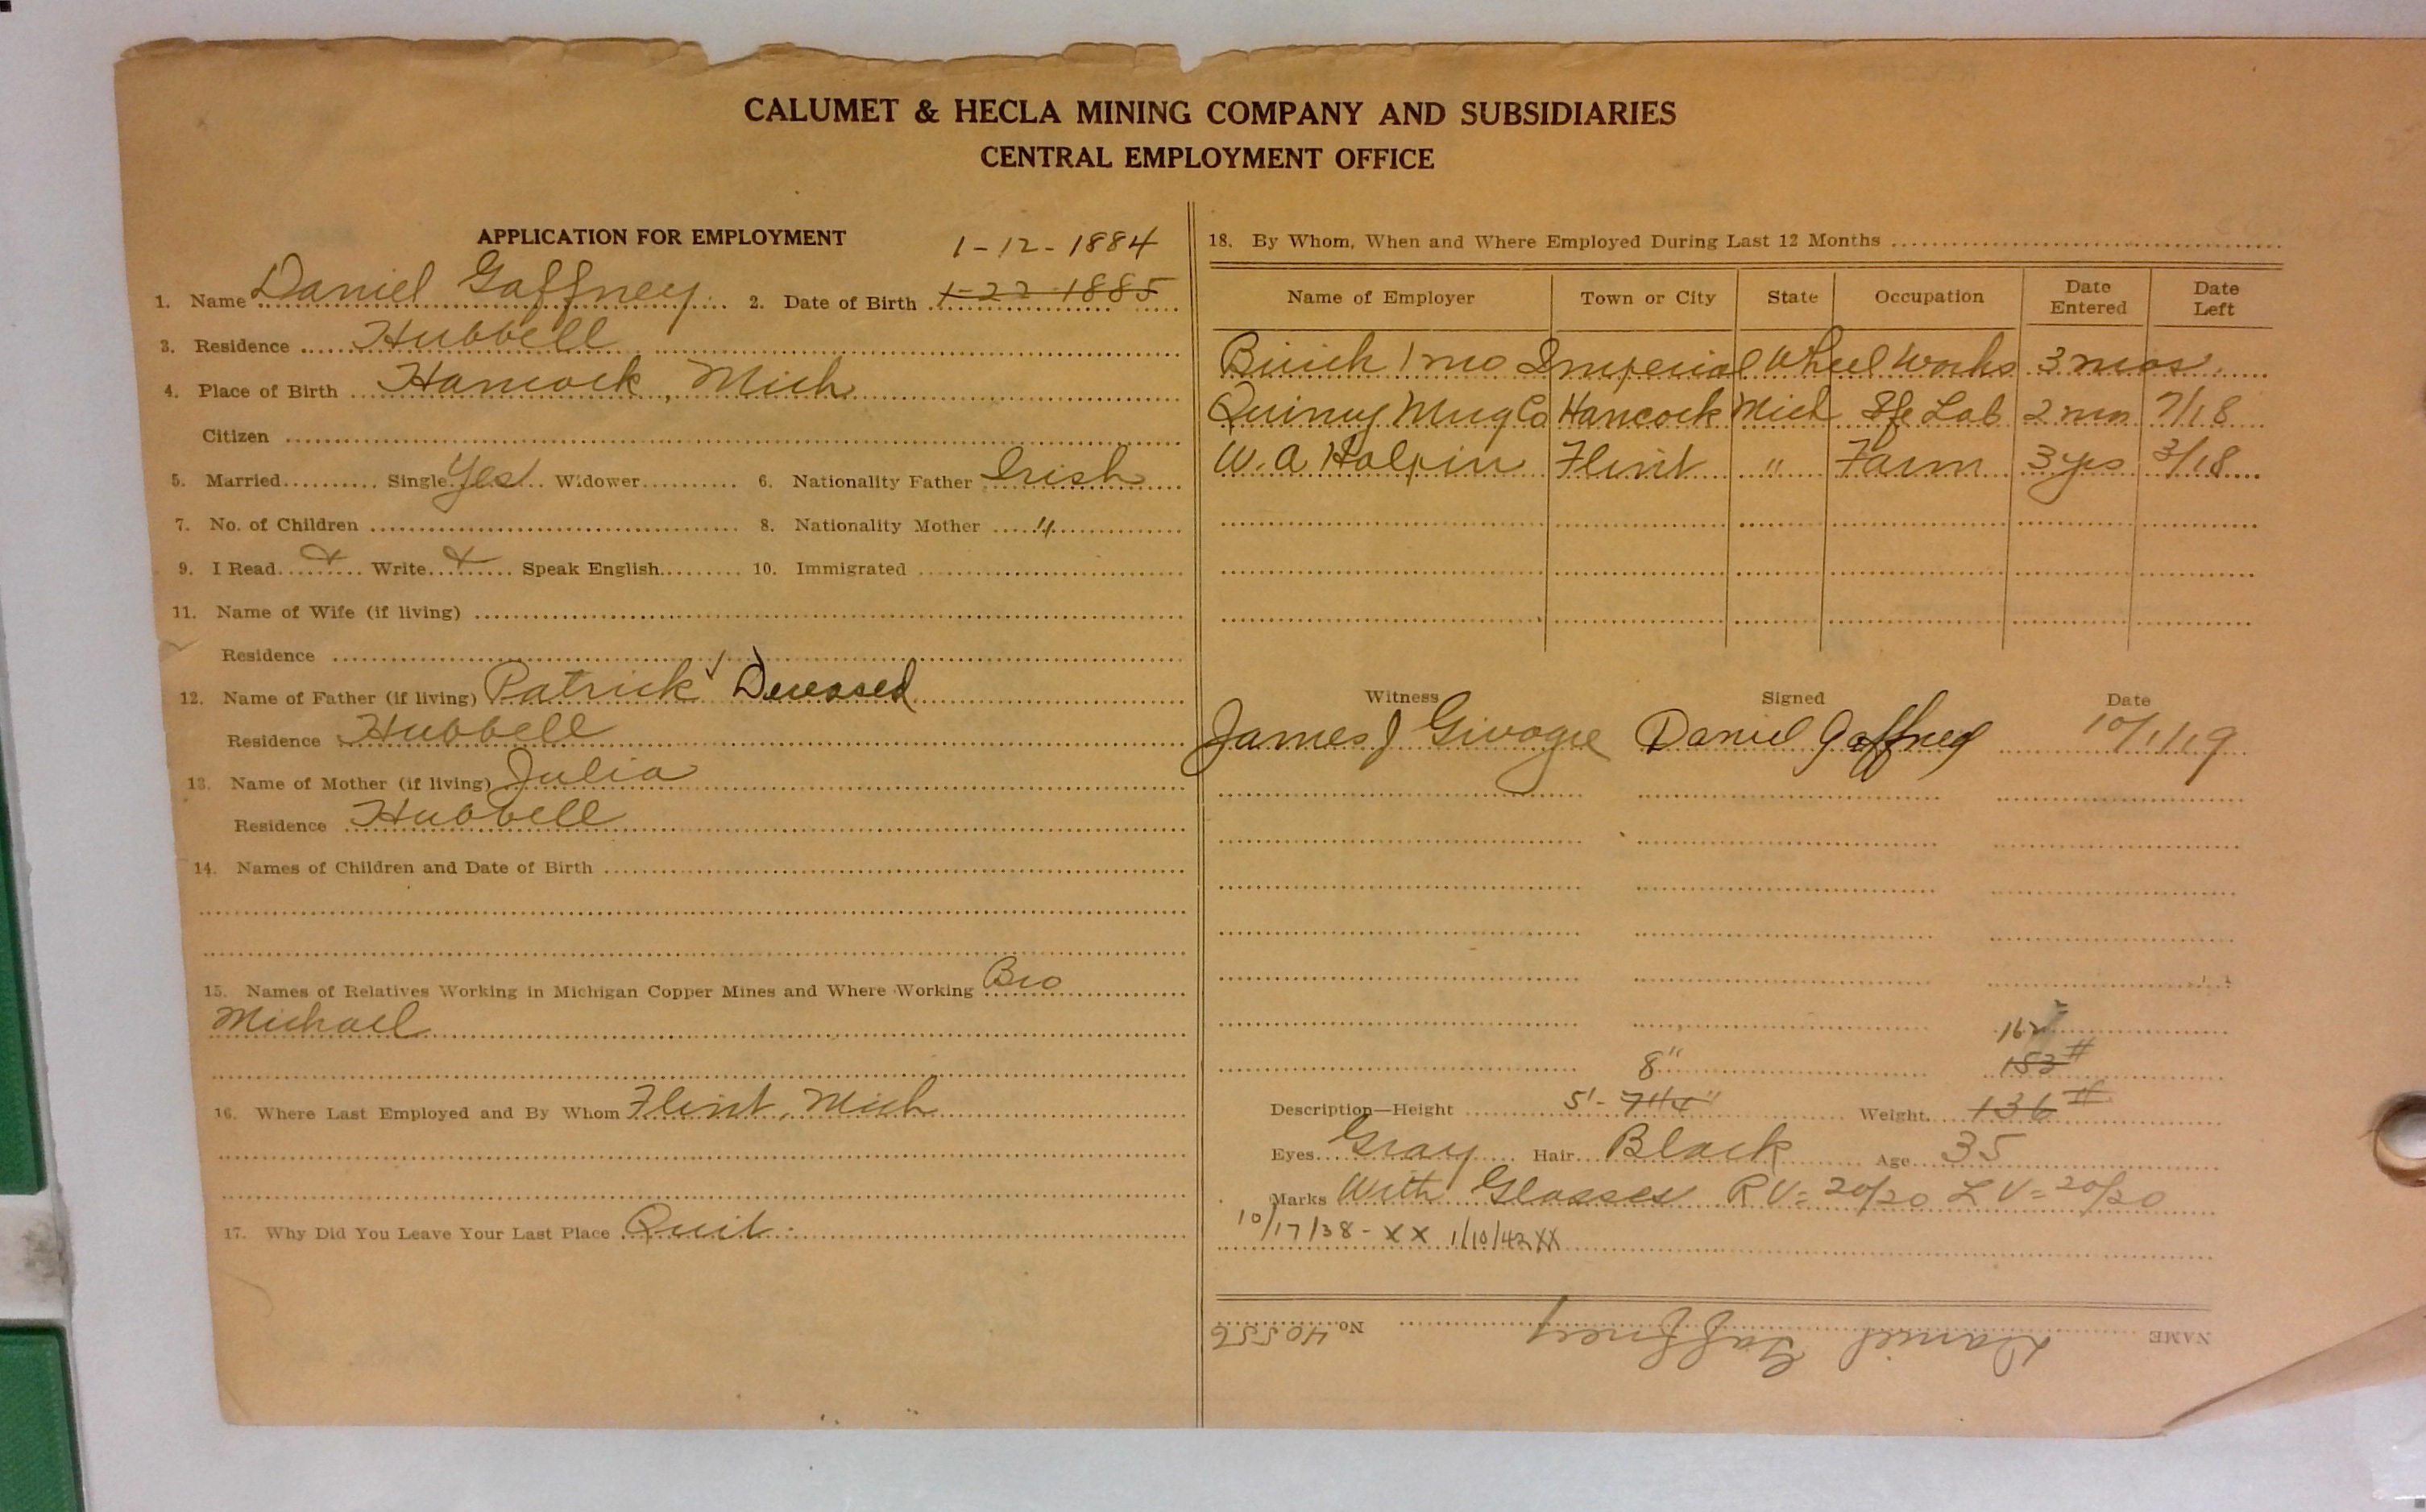 CALUMET & HECLA MINING COMPANY AND SUBSIDIARIES
CENTRAL EMPLOYMENT OFFICE
APPLICATION FOR EMPLOYMENT
1-12-1884
1. Name Daniel Gaffney 2. Date of Birth 1-22-1885
3. Residence Hubbell
4. Place of Birth Hancock, Mich
Citizen
5. Married Single Yes Widower 6. Nationality Father Irish
7. No. of Children 8. Nationality Mother "
9. I Read x Write x Speak English 10. Immigrated
11. Name of Wife (if living)
Residence
12. Name of Father (if living) Patrick Deceased
Residence Hubbell
13. Name of Mother (if living) Julia
Residence Hubbell
14. Names of Children and Date of Birth
15. Names of Relatives Working in Michigan Copper Mines and Where Working Bro
Michael
16. Where Last Employed and By Whom Flint, Mich
17. Why Did You Leave Your Last Place Quit.
18. By Whom, When and Where Employed During Last 12 Months
Name of Employer Town or City State Occupation Date Entered Date Left
Buick 1 mo Imperial Wheel Works 3 mos.
Quincy Mng Co Hancock Mich Sfe Lab 2 mn 7/18
W. A. Halpin Flint " Farm 3 yrs 3/18
Witness Signed Date
James J Daniel Gaffney 10/1/19
162
8" 153#
Description—Height 5'- 7 1/4" Weight 136#
Eyes Gray Hair Black Age 35
Marks With Glasses RV=20/20 LV=20/20
10/17/38-XX 1/10/42XX
NAME Daniel Gaffney No. 40556